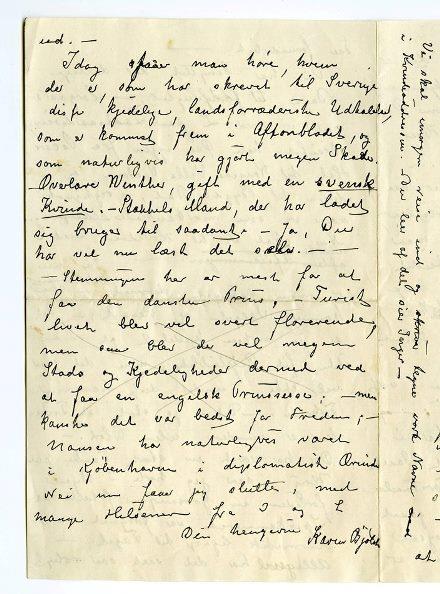 ud. —
Idag faar man høre, hvem
der er, som har skrevet til Sverige
disse kjedelige, landsforræderiske Udtalelser,
som er kommet frem i Aftonbladet, og
som naturligvis har gjort megen Skade.
Overlærer Winther, gift med en svensk
Kvinde. — Stakkels Mand, der har ladet
sig bruge til saadant. — Ja, Du
har vel nu læst det selv. —
— Stemningen her er mest for at
faa den danske Prins, — Turist
blev vel svært florerende,
men saa blev der vel megen
Stads og Kjedeligheder dermed ved
at faa en engelsk Prinsesse. — men
kanske det var bedst for Freden; —
Nansen har naturligvis været
i Kjøbenhavn i diplomatisk Ærinde
Nei nu faar jeg slutte, med
mange Hilsener fra I og L
Din hengivne Karen
Vi skal imorgen reise ind og tegne vore Navne
i Du ler af det, sier Inger —
at